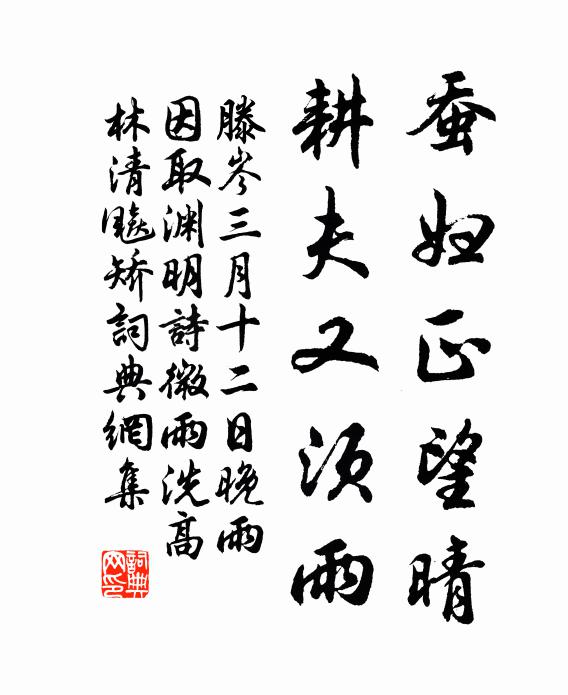 蚕妇正望晴
耕夫又须雨
滕岑三月十二日晚雨
因取渊明詩微雨洗高
林清飈矫詞典網集
詞典网印